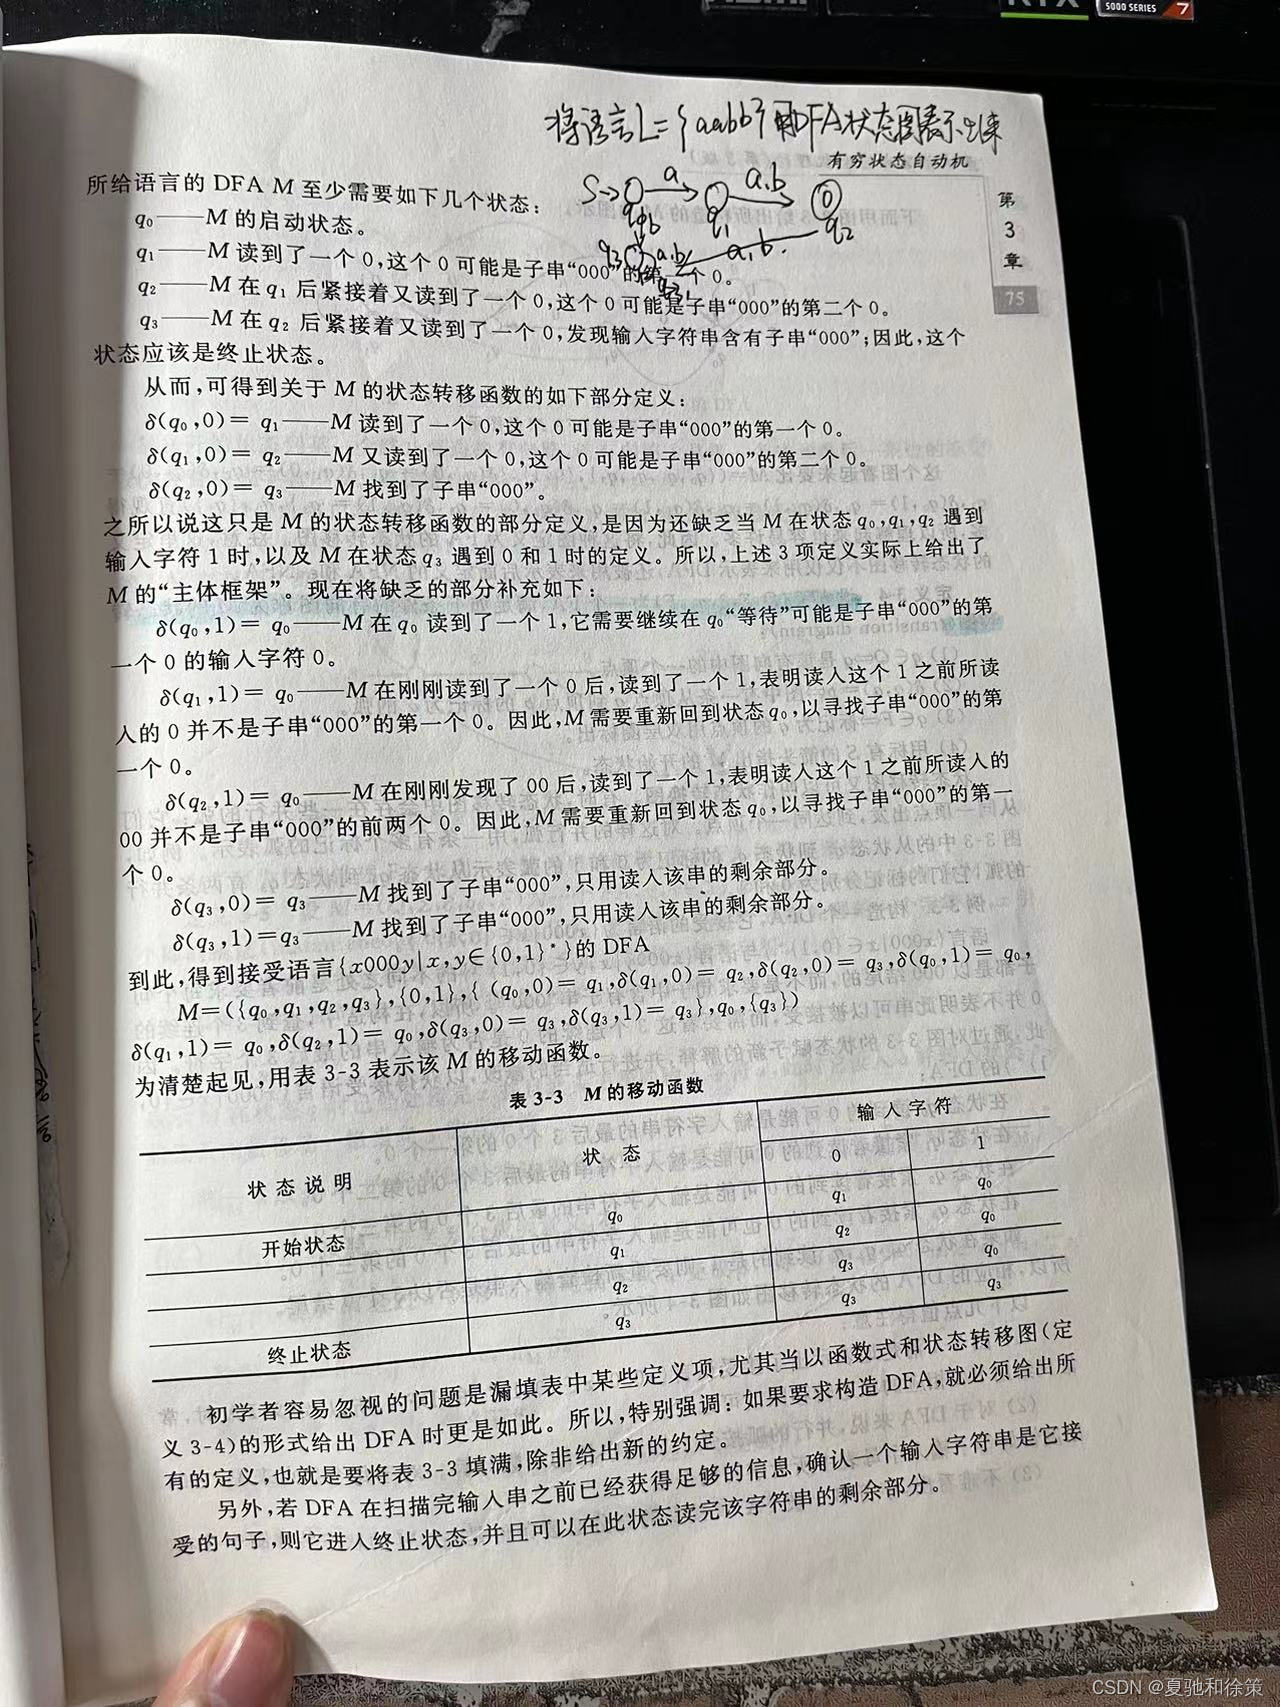 5000 SERIES 7
将语言L={aabb}用DFA状态图表示出来
有穷状态自动机
S→ a a,b
q₀ q₁ q₂
q₃ a,b a,b
第
3
章
75
所给语言的 DFA M 至少需要如下几个状态:
q₀——M 的启动状态。
q₁——M 读到了一个 0,这个 0 可能是子串“000”的第一个 0。
q₂——M 在 q₁ 后紧接着又读到了一个 0,这个 0 可能是子串“000”的第二个 0。
q₃——M 在 q₂ 后紧接着又读到了一个 0,发现输入字符串含有子串“000”;因此,这个
状态应该是终止状态。
从而,可得到关于 M 的状态转移函数的如下部分定义:
δ(q₀,0)= q₁——M 读到了一个 0,这个 0 可能是子串“000”的第一个 0。
δ(q₁,0)= q₂——M 又读到了一个 0,这个 0 可能是子串“000”的第二个 0。
δ(q₂,0)= q₃——M 找到了子串“000”。
之所以说这只是 M 的状态转移函数的部分定义,是因为还缺乏当 M 在状态 q₀,q₁,q₂ 遇到
输入字符 1 时,以及 M 在状态 q₃ 遇到 0 和 1 时的定义。所以,上述 3 项定义实际上给出了
M 的“主体框架”。现在将缺乏的部分补充如下:
δ(q₀,1)= q₀——M 在 q₀ 读到了一个 1,它需要继续在 q₀“等待”可能是子串“000”的第
一个 0 的输入字符 0。
δ(q₁,1)= q₀——M 在刚刚读到了一个 0 后,读到了一个 1,表明读入这个 1 之前所读
入的 0 并不是子串“000”的第一个 0。因此,M 需要重新回到状态 q₀,以寻找子串“000”的第
一个 0。
δ(q₂,1)= q₀——M 在刚刚发现了 00 后,读到了一个 1,表明读入这个 1 之前所读入的
00 并不是子串“000”的前两个 0。因此,M 需要重新回到状态 q₀,以寻找子串“000”的第一
个 0。
δ(q₃,0)= q₃——M 找到了子串“000”,只用读入该串的剩余部分。
δ(q₃,1)=q₃——M 找到了子串“000”,只用读入该串的剩余部分。
到此,得到接受语言{x000y|x,y∈{0,1}*}的 DFA
M=({q₀,q₁,q₂,q₃},{0,1},{ (q₀,0)= q₁,δ(q₁,0)= q₂,δ(q₂,0)= q₃,δ(q₀,1)= q₀,
δ(q₁,1)= q₀,δ(q₂,1)= q₀,δ(q₃,0)= q₃,δ(q₃,1)= q₃},q₀,{q₃})
为清楚起见,用表 3-3 表示该 M 的移动函数。
表 3-3 M 的移动函数
状 态 说 明 状 态 输 入 字 符
0 1
开始状态 q₀ q₁ q₀
q₁ q₂ q₀
q₂ q₃ q₀
终止状态 q₃ q₃ q₃
初学者容易忽视的问题是漏填表中某些定义项,尤其当以函数式和状态转移图(定
义 3-4)的形式给出 DFA 时更是如此。所以,特别强调:如果要求构造 DFA,就必须给出所
有的定义,也就是要将表 3-3 填满,除非给出新的约定。
另外,若 DFA 在扫描完输入串之前已经获得足够的信息,确认一个输入字符串是它接
受的句子,则它进入终止状态,并且可以在此状态读完该字符串的剩余部分。
CSDN @夏驰和徐策